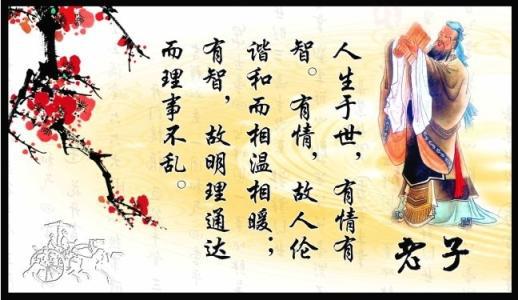 人生于世，有情有
智。有情，故人伦
谐和而相温相暖；
有智，故明理通达
而理事不乱。
老子